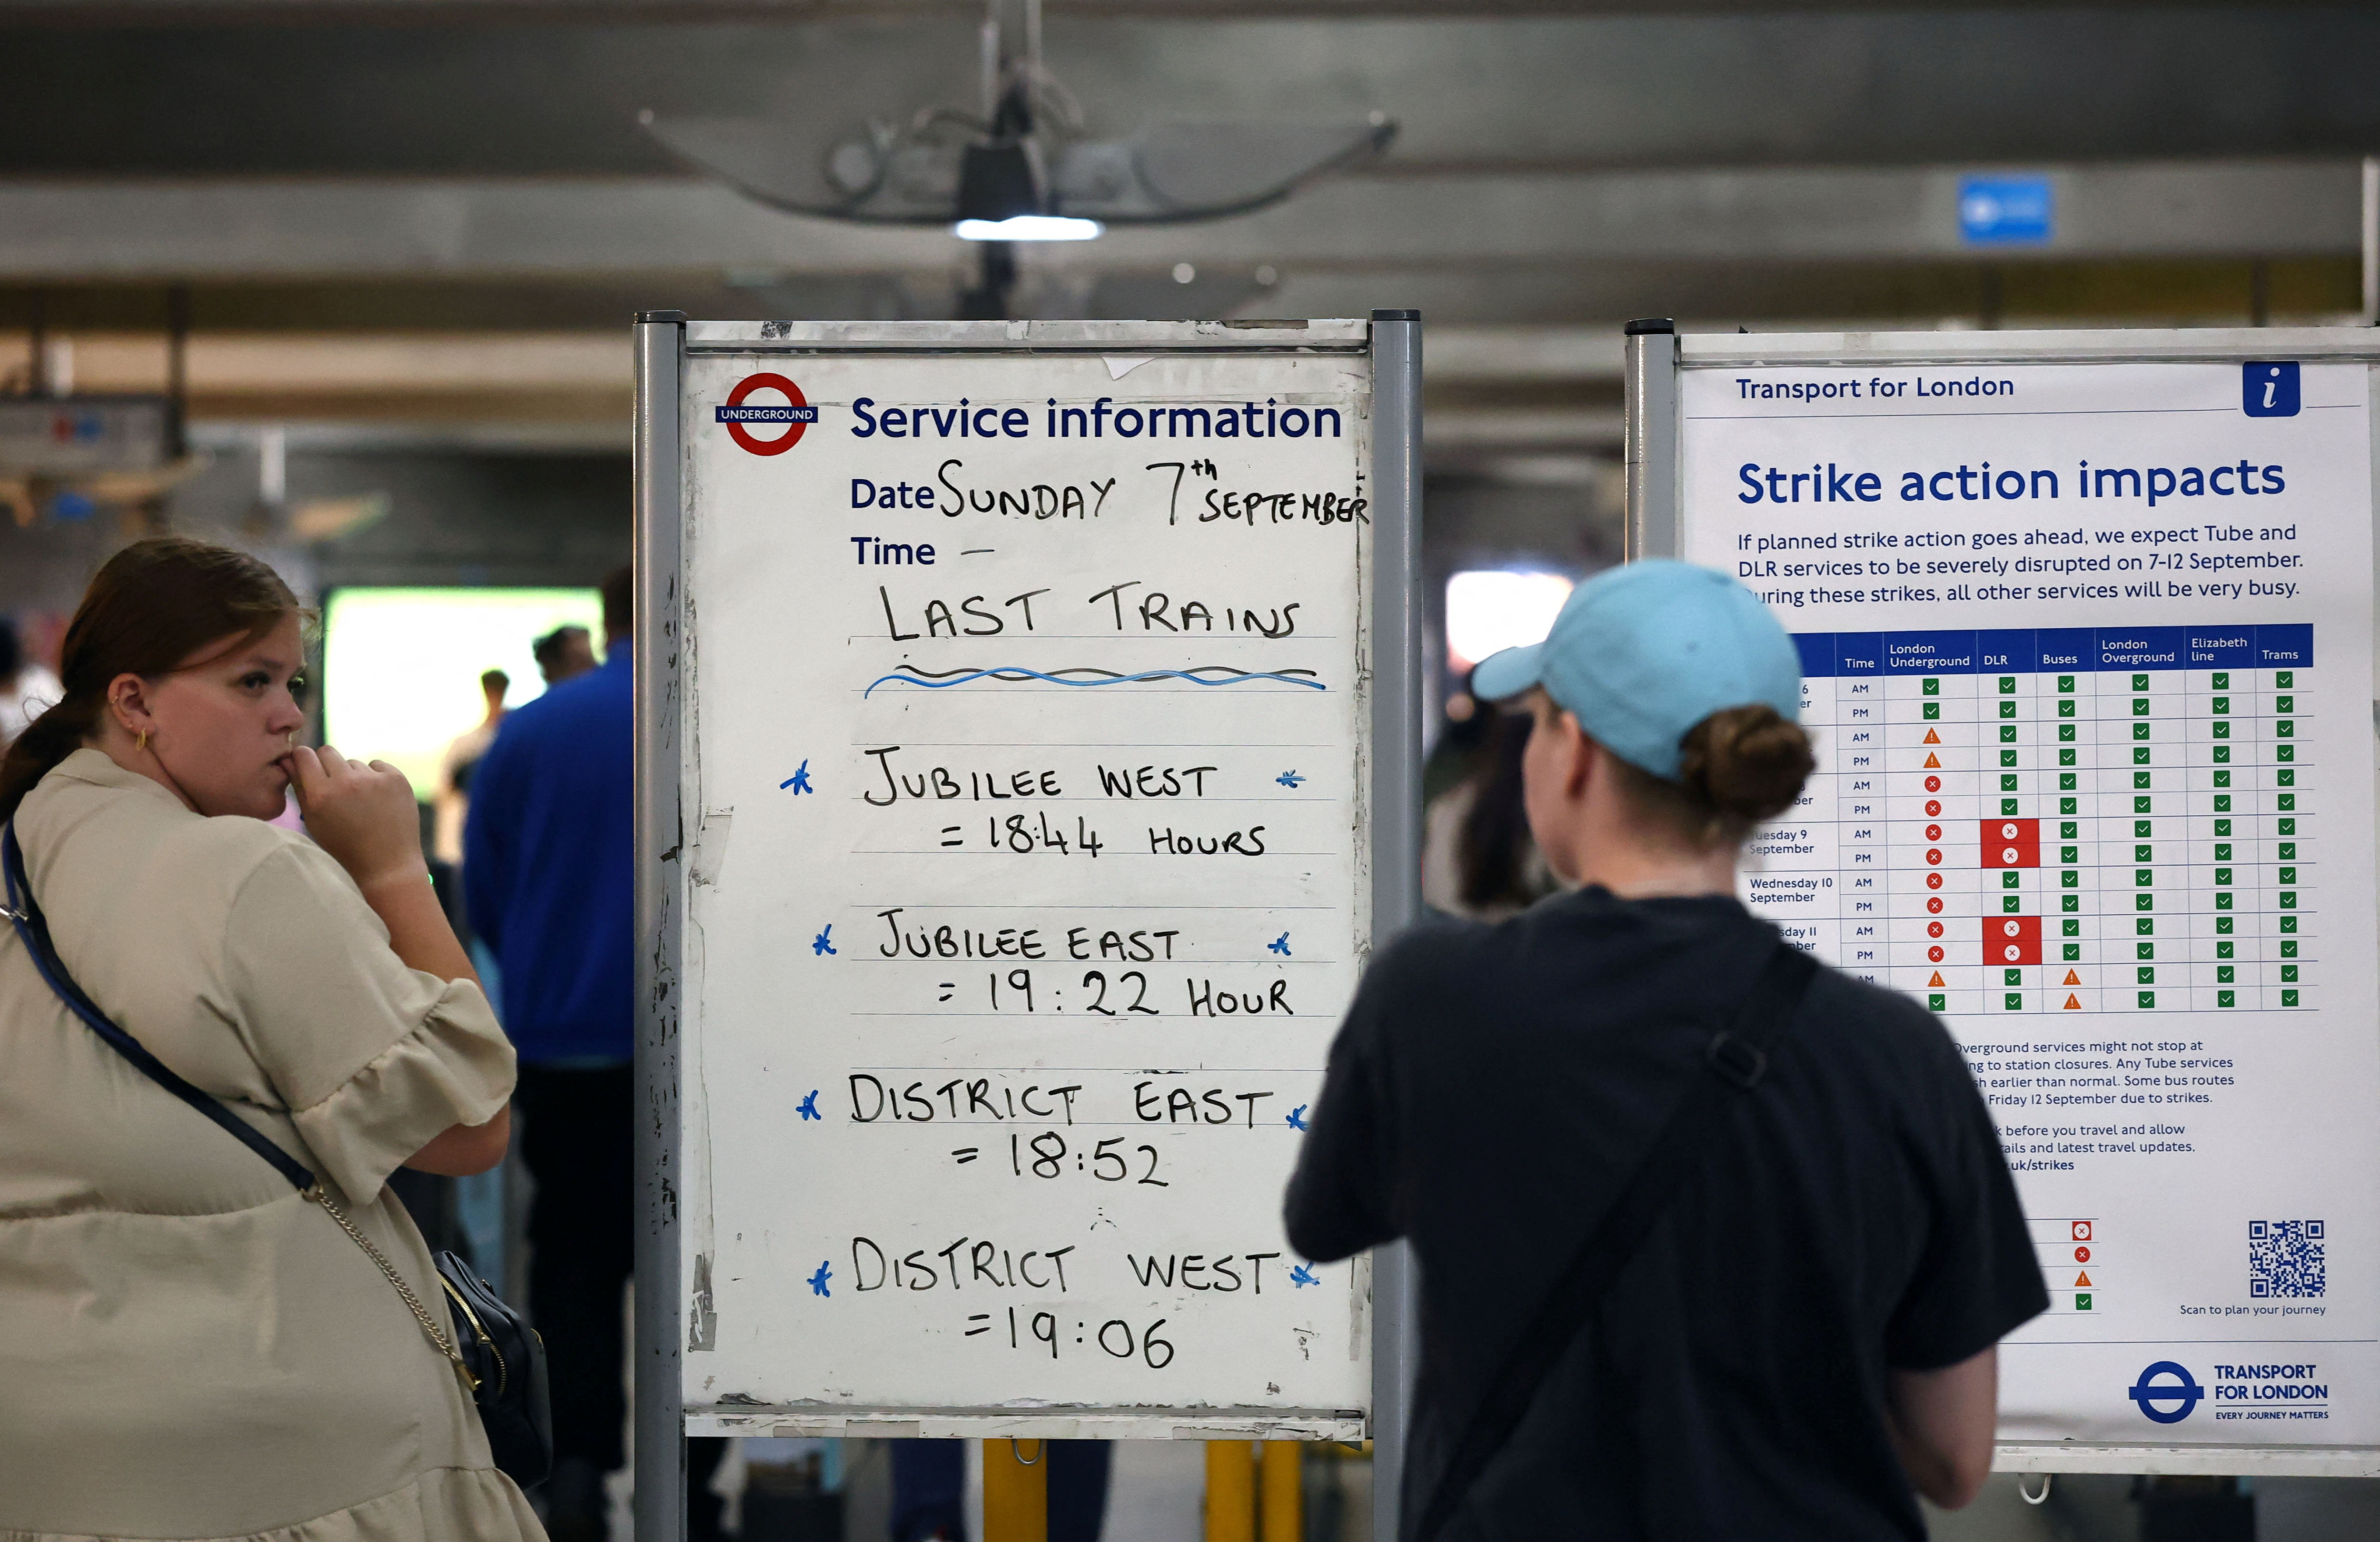 UNDERGROUND
Service information
Date SUNDAY 7th SEPTEMBER
Time —
LAST TRAINS
* JUBILEE WEST *
= 18:44 HOURS
* JUBILEE EAST *
= 19:22 HOUR
* DISTRICT EAST *
= 18:52
* DISTRICT WEST *
= 19:06
Transport for London
i
Strike action impacts
If planned strike action goes ahead, we expect Tube and
DLR services to be severely disrupted on 7-12 September.
these strikes, all other services will be very busy.
Time London Underground DLR Buses London Overground Elizabeth line Trams
6 AM
PM
AM
PM
AM
PM
9 AM
September PM
Wednesday 10 AM
September PM
11 AM
PM
AM
Overground services might not stop at
to station closures. Any Tube services
earlier than normal. Some bus routes
Friday 12 September due to strikes.
before you travel and allow
and latest travel updates.
uk/strikes
Scan to plan your journey
TRANSPORT
FOR LONDON
EVERY JOURNEY MATTERS